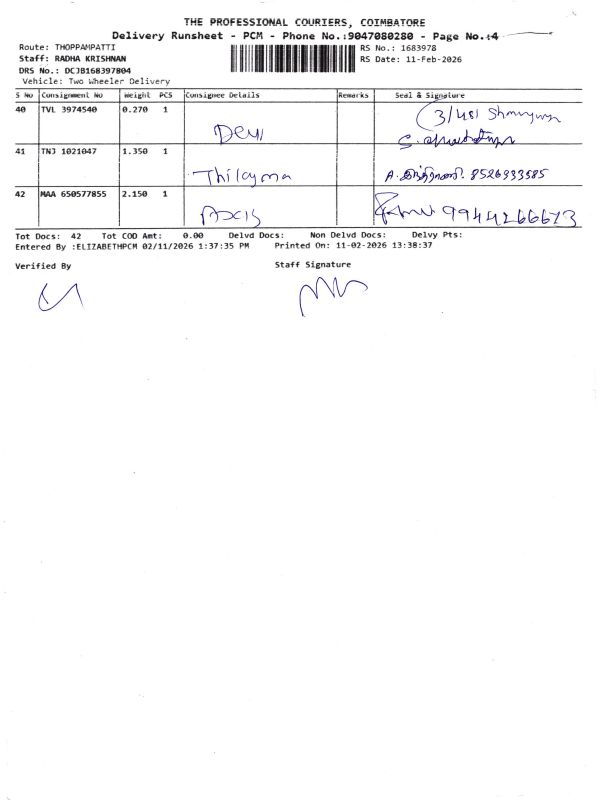 THE PROFESSIONAL COURIERS, COIMBATORE
Delivery Runsheet - PCM - Phone No.:9047080280 - Page No.:4
Route: THOPPAMPATTI
RS No.: 1683978
Staff: RADHA KRISHNAN
RS Date: 11-Feb-2026
DRS No.: DCJB168397804
Vehicle: Two Wheeler Delivery
S No Consignment No Weight PCS Consignee Details Remarks Seal & Signature
40 TVL 3974540 0.270 1
3/481
Devi
41 TNJ 1021047 1.350 1
Thilayma
8526933585
42 MAA 650577855 2.150 1
Axis
9944266673
Tot Docs: 42 Tot COD Amt: 0.00 Delvd Docs: Non Delvd Docs: Delvy Pts:
Entered By :ELIZABETHPCM 02/11/2026 1:37:35 PM Printed On: 11-02-2026 13:38:37
Verified By
Staff Signature